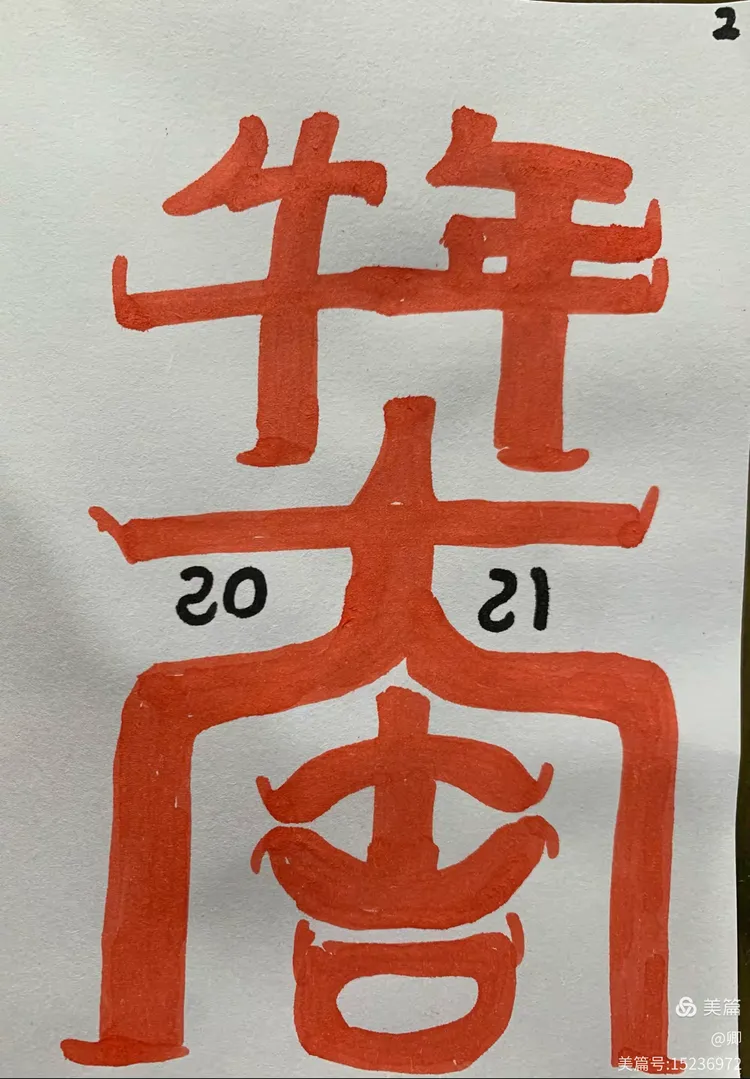 2
牛年
大
20 21
吉
美篇
@卿
美篇号:15236972